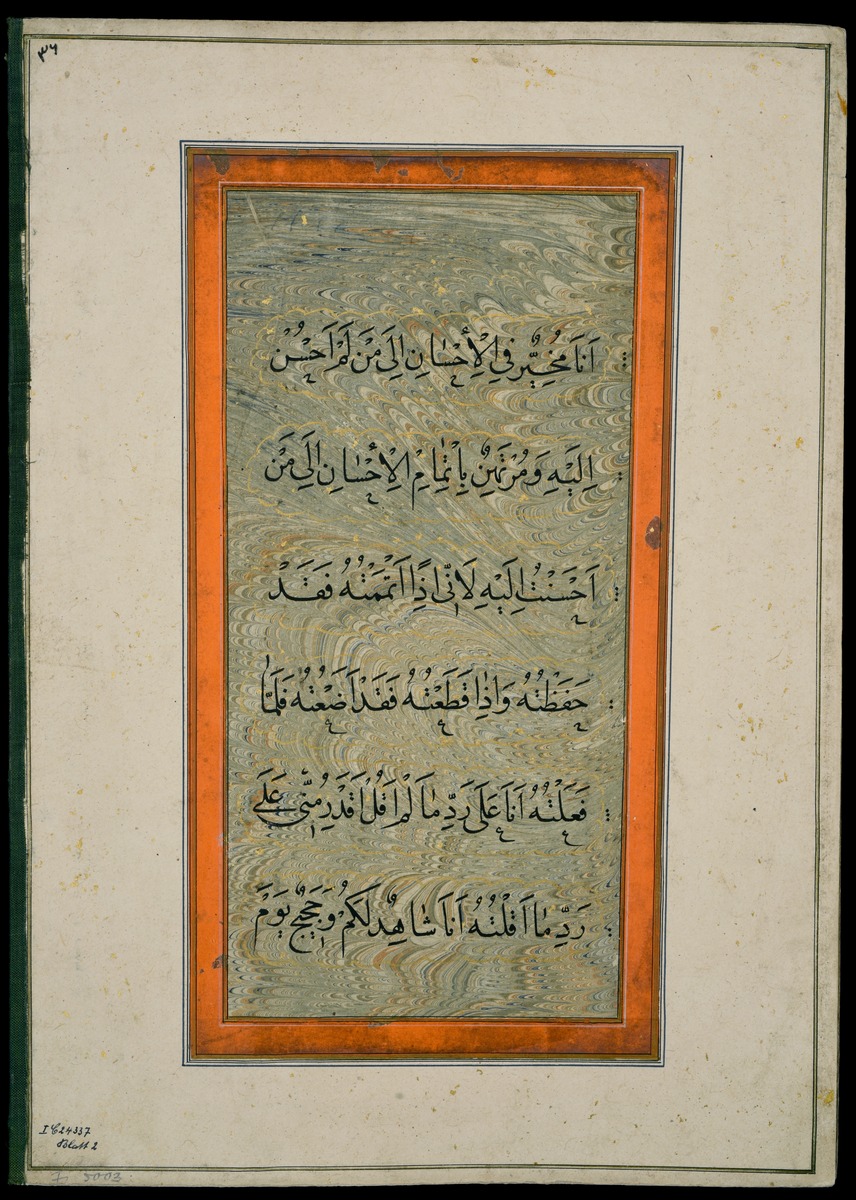 ٣٦
اَنَا مُخَيَّرٌ فِى الْاِحْسَانِ اِلَى مَنْ لَمْ اَحْسُنْ
اِلَيْهِ وَمُرْتَهِنٌ بِاِتْمَامِ الْاِحْسَانِ اِلَى مَنْ
اَحْسَنْتُ اِلَيْهِ لَاِنّى اِذَا اَتْمَمْتُهُ فَقَدْ
حَفَظْتُهُ وَاِذَا قَطَعْتُهُ فَقَدْ اَضَعْتُهُ فَلَمَّا
فَعَلْتُهُ اَنَا عَلَى رَدِّ مَا لَمْ اَقُلْ اَقْدَرُ مِنّى عَلَى
رَدِّ مَا اَقُلْتُهُ اَنَا شَاهِدٌ لَكُمْ وَحَجِيجٌ يَوْمَ
I C 24337
Blatt 2